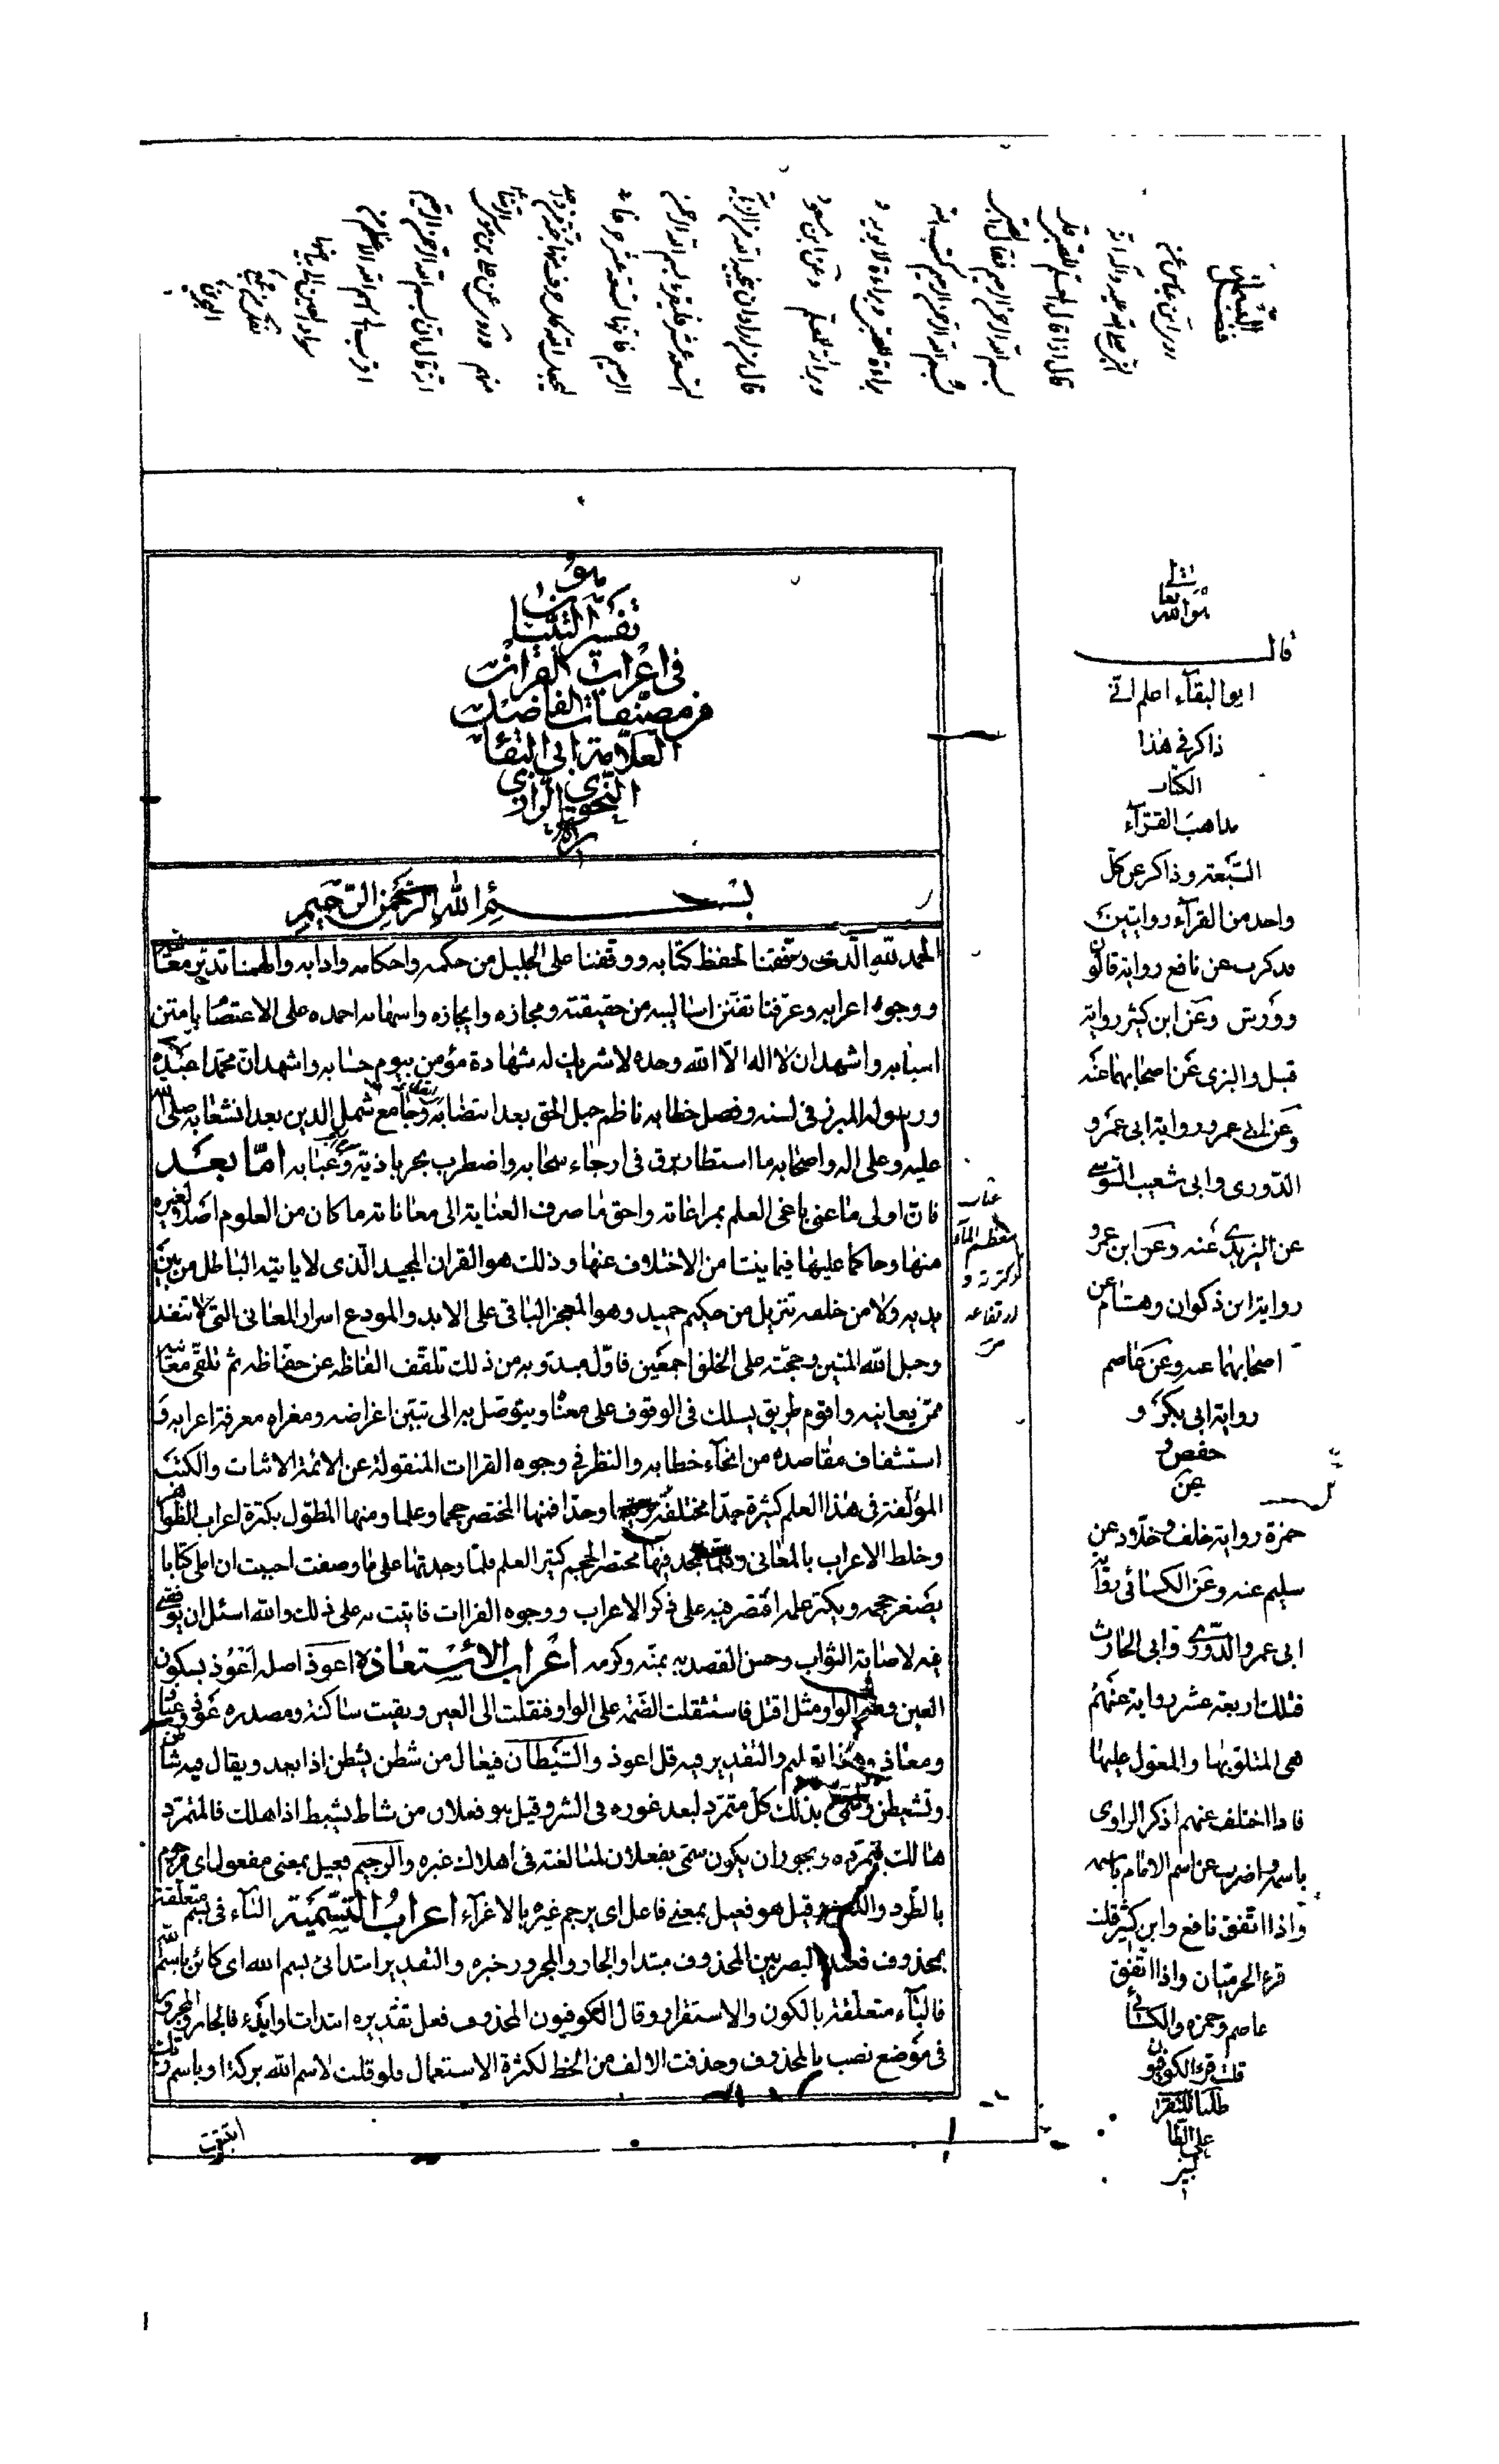 هو
تفسير التبيان
فى اعراب القران
من مصنفات الفاضل
العلّامة ابى البقاء
النحوى الرازى
ره
بسم الله الرحمن الرحيم
الحمد لله الذى وفقنا لحفظ كتابه ووقفنا على الجليل من حكمه واحكامه وادابه والهمنا تدبر معانيه
ووجوه اعرابه وعرفنا تفنن اساليبه من حقيقته ومجازه وايجازه واسهابه احمده على الاعتصام بامتن
اسبابه واشهد ان لا اله الا الله وحده لا شريك له شهادة مؤمن بيوم حسابه واشهد ان محمدا عبده
ورسوله المبرز فى لسنه وفصل خطابه ناظم حبل الحق بعد انقضابه وجامع شمل الدين بعد انشعابه صلى الله
عليه وعلى اله واصحابه ما استطار برق فى ارجاء سحابه واضطرب بحر باذيه وعبابه امّا بعد
فان اولى ما عنى باغى العلم بمراعاته واحق ما صرف العناية الى معاناته ما كان من العلوم اصلا لغيره
منها وحاكما عليها فيما ينشا من الاختلاف عنها وذلك هو القران المجيد الذى لا ياتيه الباطل من بين
يديه ولا من خلفه تنزيل من حكيم حميد وهو المعجز الباقى على الابد والمودع اسرار المعانى التى لا تنفد
وحبل الله المتين وحجته على الخلق اجمعين فاول مبدو به من ذلك تلقف الفاظه عن حفاظه ثم تلقى معانيه
ممن يعانيه واقوم طريق يسلك فى الوقوف على معناه ويتوصل به الى تبيّن اغراضه ومغزاه معرفة اعرابه و
استشفاف مقاصده من انحاء خطابه والنظر فى وجوه القراات المنقولة عن الائمة الاثبات والكتب
المؤلفة فى هذا العلم كثيرة جدّا مختلفة وحدّا فمنها المختصر حجما وعلما ومنها المطوّل بكثرة اعراب الظواهر
وخلط الاعراب بالمعانى وقلما تجد فيها مختصر الحجم كثير العلم فلمّا وجدتها على ما وصفت احببت ان املى كتابا
يصغر حجمه ويكثر علمه اقتصر فيه على ذكر الاعراب ووجوه القراات فاتيت به على ذلك والله اسئل ان يوفقنى
فيه لاصابة الثواب وحسن القصد به بمنّه وكرمه اعراب الاستعاذة اعوذ اصله اعوذ بسكون
العين وضم الواو مثل اقتل فاستثقلت الضمة على الواو فنقلت الى العين وبقيت ساكنة ومصدره عوذ وعياذ
ومعاذ وهذا تعليم والتقدير فيه قل اعوذ والشيطان فيعال من شطن يشطن اذا بعد ويقال فيه شاطن
وتشيطن وسمى بذلك كل متمرّد لبعد غوره فى الشر وقيل هو فعلان من شاط يشيط اذا هلك فالمتمرّد
هالك بتمرده ويجوز ان يكون سمّى بفعلان لمبالغته فى اهلاك غيره والرجيم فعيل بمعنى مفعول اى مرجوم
بالطّرد واللعن وقيل هو فعيل بمعنى فاعل اى يرجم غيره بالاغرآء اعراب التسمية الباء فى بسم متعلقة
بمحذوف فعند البصريين المحذوف مبتدا والجار والمجرور خبره والتقدير ابتدائى بسم الله اى كائن باسم الله
فالباء متعلقة بالكون والاستقرار وقال الكوفيون المحذوف فعل تقديره ابتدات او ابدء فالجار والمجرور
فى موضع نصب بالمحذوف وحذفت الالف من الخط لكثرة الاستعمال فلو قلت لاسم الله بركة او باسم ربك
اثبتت
عباب
معظم الماء
وكثرته و
ارتفاعه
هو الله تعالى
قال
ابو البقآء اعلم انّى
ذاكر فى هذا
الكتاب
مذاهب القرّآء
السّبعة وذاكر عن كل
واحد من القرآء روايتين
فذكرت عن نافع رواية قالون
وورش وعن ابن كثير رواية
قنبل والبزى عن اصحابهما عنه
وعن ابى عمرو رواية ابى عمرو
الدّورى وابى شعيب السّوسى
عن اليزيدى عنه وعن ابن عمرو
رواية ابن ذكوان وهشام عن
اصحابهما عنه وعن عاصم
رواية ابى بكر و
حفص و
عن
حمزة رواية خلف وخلاد عن
سليم عنه وعن الكسائى رواية
ابى عمر والدّورى وابى الحارث
فتلك اربعة عشر رواية عنهم
هى المتلو بها والمعول عليها
فاذا اختلف عنهم اذكر الراوى
باسمه واضرب عن اسم الامام باسمه
واذا اتّفق نافع وابن كثير قلت
قرء الحرميّان واذا اتّفق
عاصم وحمزه والكسائى
قلت قرء الكوفيون
طلبا للتقرا
على الطا
لبين
فضل
البسملة
روى ابن عباس عن
النبى صلى الله عليه وآله انه
قال اذا قال المعلم للصبى قل
بسم الله الرحمن الرحيم فقال الصبى
بسم الله الرحمن الرحيم كتب الله
براءة للصبى وبراءة لابويه و
وبرائة للمعلم وعن ابن مسعود
قال من اراد ان ينجيه الله من الزبانية
التسعة عشر فليقرء بسم الله الرحمن
الرحيم فانها تسعة عشر حرفا
ليجعل الله كل حرف منها جنة من واحد
منهم وروى عن على بن موسى الرضا
انه قال ان بسم الله الرحمن الرحيم
اقرب الى اسم الله الاعظم من
سواد العين الى بياضها